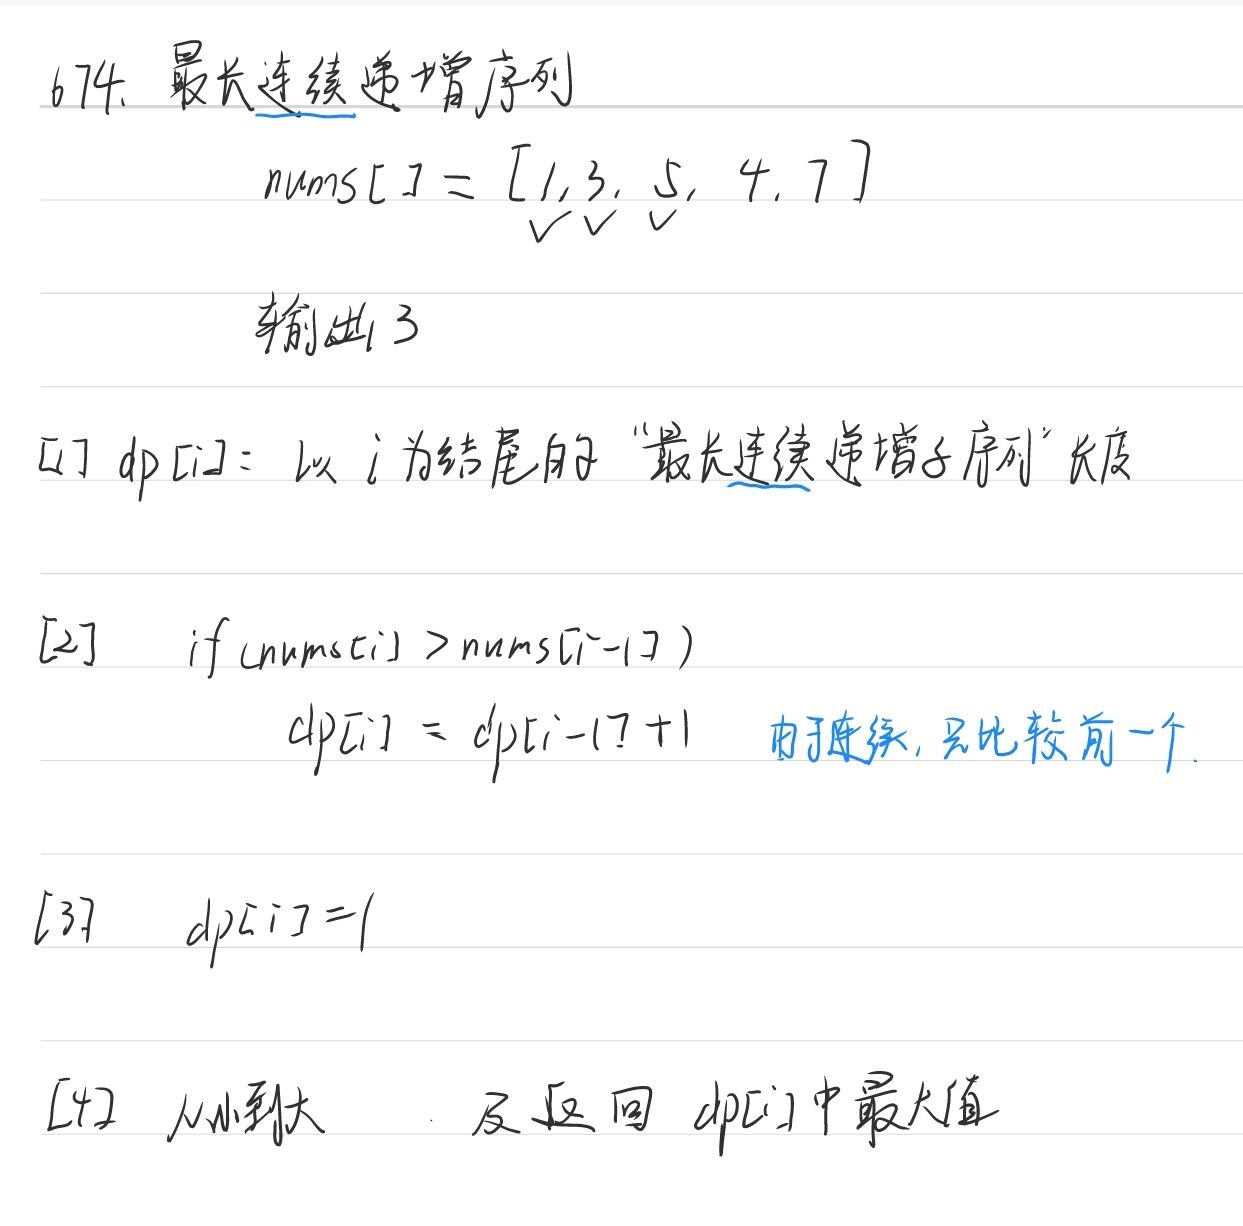 674. 最长连续递增序列
nums[] = [1, 3, 5, 4, 7]
输出 3
[1] dp[i]: 以 i 为结尾的 "最长连续递增子序列" 长度
[2] if (nums[i] > nums[i-1])
dp[i] = dp[i-1] + 1 由于连续, 只比较前一个.
[3] dp[i] = 1
[4] 从小到大 . 反返回 dp[i] 中最大值